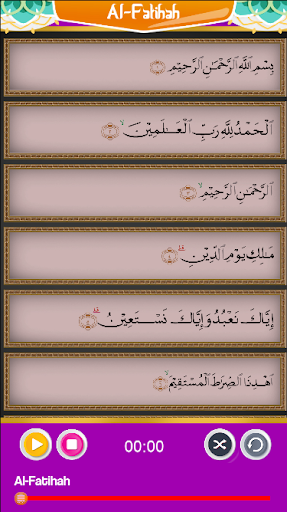 Al-Fatihah
بِسْمِ ٱللَّهِ ٱلرَّحْمَٰنِ ٱلرَّحِيمِ ١
ٱلْحَمْدُ لِلَّهِ رَبِّ ٱلْعَٰلَمِينَ ٢
ٱلرَّحْمَٰنِ ٱلرَّحِيمِ ٣
مَٰلِكِ يَوْمِ ٱلدِّينِ ٤
إِيَّاكَ نَعْبُدُ وَإِيَّاكَ نَسْتَعِينُ ٥
ٱهْدِنَا ٱلصِّرَٰطَ ٱلْمُسْتَقِيمَ ٦
00:00
Al-Fatihah